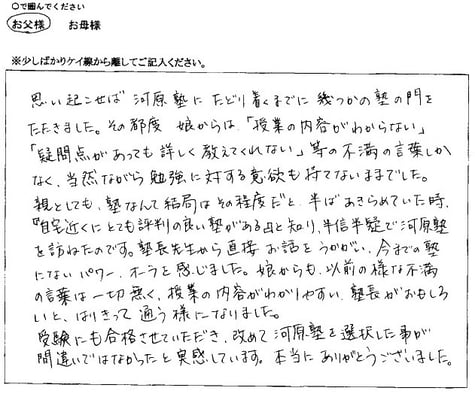 ○で囲んでください
お父様 お母様
※少しばかりケイ線から離してご記入ください。
思い起こせば 河原塾に たどり着くまでに 幾つかの塾の門を
たたきました。その都度 娘からは、「授業の内容がわからない」
「疑問点があっても詳しく教えてくれない」等の不満の言葉しか
なく、当然ながら勉強に対する意欲も持てないままでした。
親としても、塾なんて結局はその程度だと、半ばあきらめていた時、
『自宅近くにとても評判の良い塾がある』と知り、半信半疑で河原塾
を訪ねたのです。塾長先生から直接お話をうかがい、今までの塾
にないパワー、オーラを感じました。娘からも、以前の様な不満
の言葉は一切無く、授業の内容がわかりやすい、塾長がおもしろ
いと、はりきって通う様になりました。
受験にも合格させていただき、改めて河原塾を選択した事が
間違いではなかったと実感しています。本当にありがとうございました。